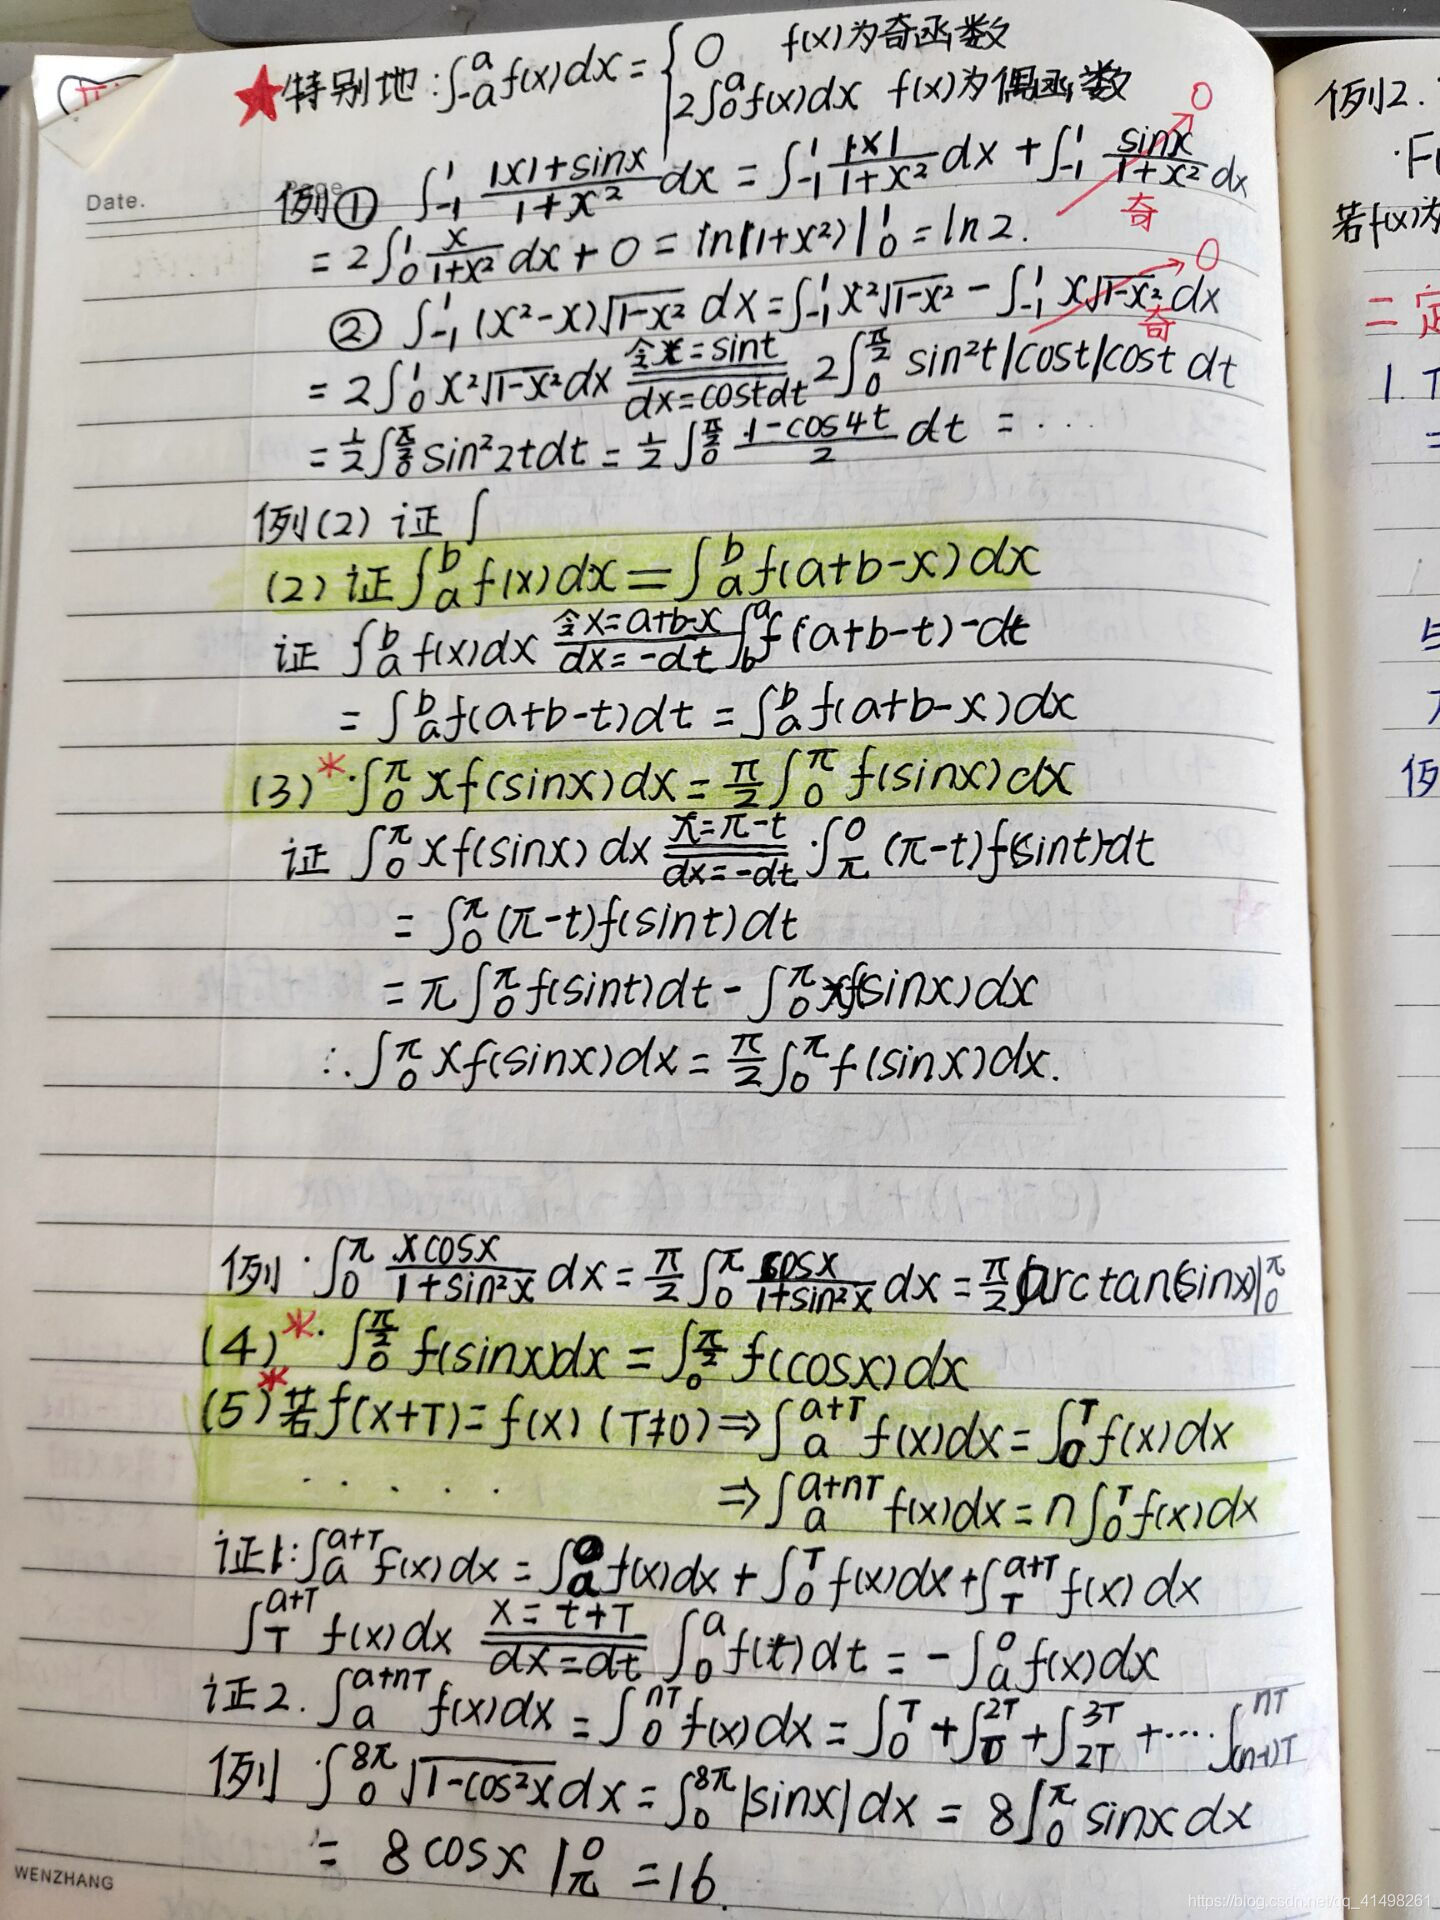 ★特别地:∫₋ₐᵃ f(x)dx = { 0 f(x)为奇函数
2∫₀ᵃ f(x)dx f(x)为偶函数
0
Date.
例① ∫₋₁¹ (|x|+sinx)/(1+x²) dx = ∫₋₁¹ |x|/(1+x²) dx + ∫₋₁¹ sinx/(1+x²) dx
奇
= 2∫₀¹ x/(1+x²) dx + 0 = ln(1+x²)|₀¹ = ln2.
0
② ∫₋₁¹ (x²-x)√(1-x²) dx = ∫₋₁¹ x²√(1-x²) - ∫₋₁¹ x√(1-x²) dx
奇
= 2∫₀¹ x²√(1-x²) dx 令x=sint dx=costdt 2∫₀^(π/2) sin²t|cost|cost dt
= 1/2 ∫₀^(π/2) sin²2tdt = 1/2 ∫₀^(π/2) (1-cos4t)/2 dt = ....
例(2) 证 ∫
(2) 证 ∫ₐᵇ f(x)dx = ∫ₐᵇ f(a+b-x)dx
证 ∫ₐᵇ f(x)dx 令x=a+b-x dx=-dt ∫_b^a f(a+b-t)-dt
= ∫ₐᵇ f(a+b-t)dt = ∫ₐᵇ f(a+b-x)dx
(3)* ∫₀^π xf(sinx)dx = π/2 ∫₀^π f(sinx)dx
证 ∫₀^π xf(sinx)dx x=π-t dx=-dt ·∫_π^0 (π-t)f(sint)dt
= ∫₀^π (π-t)f(sint)dt
= π∫₀^π f(sint)dt - ∫₀^π xf(sinx)dx
∴∫₀^π xf(sinx)dx = π/2 ∫₀^π f(sinx)dx.
例·∫₀^π xcosx/(1+sin²x) dx = π/2 ∫₀^π cosx/(1+sin²x) dx = π/2 arctan(sinx)|₀^π
(4)* ·∫₀^(π/2) f(sinx)dx = ∫₀^(π/2) f(cosx)dx
(5)* 若f(x+T)=f(x) (T≠0) ⇒ ∫ₐ^(a+T) f(x)dx = ∫₀^T f(x)dx
. . . . . ⇒ ∫ₐ^(a+nT) f(x)dx = n∫₀^T f(x)dx
证1:∫ₐ^(a+T) f(x)dx = ∫ₐ^0 f(x)dx + ∫₀^T f(x)dx + ∫_T^(a+T) f(x)dx
∫_T^(a+T) f(x)dx x=t+T dx=dt ∫₀^a f(t)dt = -∫ₐ^0 f(x)dx
证2. ∫ₐ^(a+nT) f(x)dx = ∫₀^(nT) f(x)dx = ∫₀^T + ∫_T^(2T) + ∫_(2T)^(3T) + ···· ∫_((n-1)T)^(nT)
例 ·∫₀^(8π) √(1-cos²x) dx = ∫₀^(8π) |sinx|dx = 8∫₀^π sinxdx
= 8cosx|_π^0 = 16.
WENZHANG
例2.
若f(x)为
二 定
1.
例
https://blog.csdn.net/qq_41498261